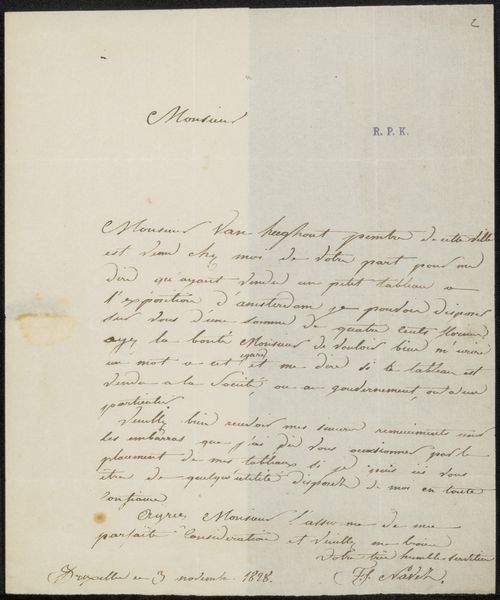 2
Monsieur
R. P. K.
Monsieur Van peintre de cette ville
est venu chez moi de votre part pour me
dire qu'ayant vendu un petit tableau a
l'exposition d'amsterdam je pouvois disposer
sur vous d'une somme de quatre cents florins
ayez la bonté Monsieur de vouloir bien m'ecrire
un mot a cet egard et me dire si le tableau est
vendu a la Societé, ou au gouvernement, ou a un
particulier
Veuillez bien recevoir mes remerciments
les embarras que j'ai pû vous occasionner par le
placement de mes tableaux si je puis ici vous
être de quelqu'utilité disposez de moi en toute
Confiance
Agréez Monsieur l'assurance de ma
parfaite Consideration et veuillez me croire
Votre très humble serviteur
Bruxelles ce 3 novembre 1828. F. J. Navez.